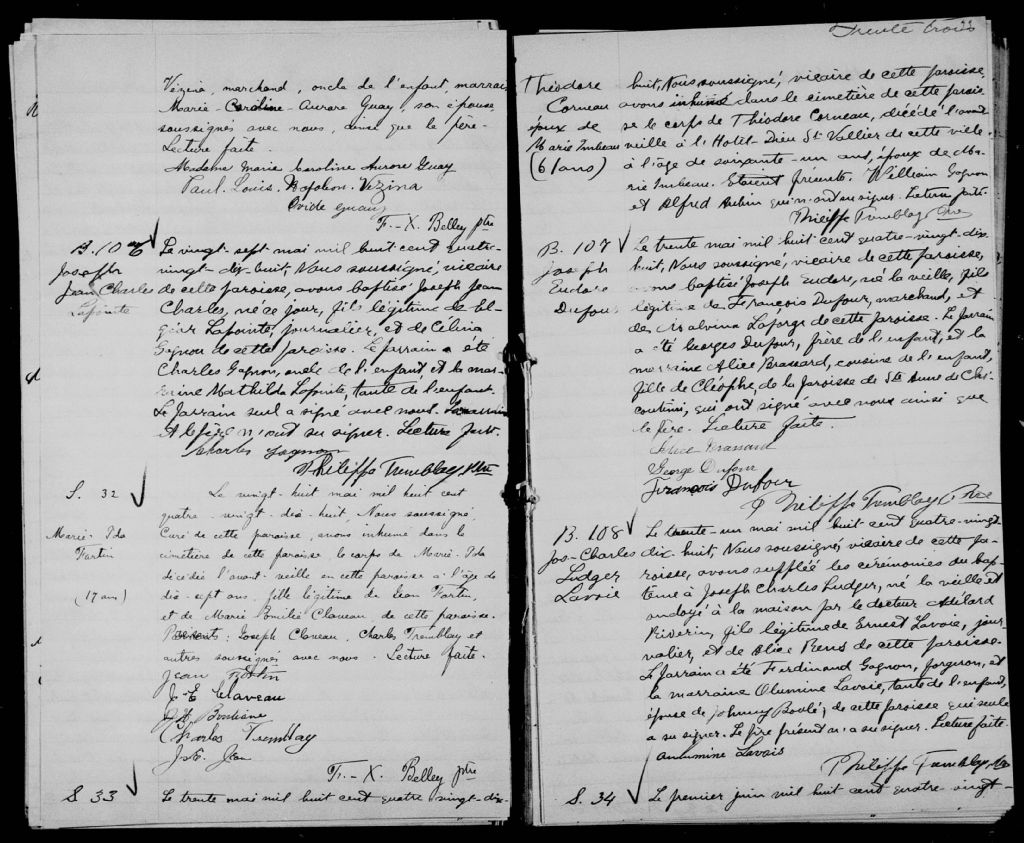 Vézina, marchand, oncle de l'enfant, marraine
Marie-Caroline-Aurore Guay, son épouse,
soussignés avec nous, ainsi que le père-
Lecture faite.
Madame Marie Caroline Aurore Guay
Paul. Louis. Napoléon. Vézina
Ovide Guay
F.-X. Belley ptre
B. 106
Joseph
Jean Charles
Lapointe
Le vingt-sept mai mil huit cent quatre-
vingt-dix-huit, Nous soussigné, vicaire
de cette paroisse, avons baptisé Joseph Jean
Charles, né ce jour, fils légitime de El-
géar Lapointe, journalier, et de Célina
Gagnon de cette paroisse. Le parrain a été
Charles Gagnon, oncle de l'enfant et la mar-
raine Mathilda Lapointe, tante de l'enfant.
Le parrain seul a signé avec nous. La marraine
et le père n'ont su signer. Lecture faite.
Charles Gagnon
Philippe Tremblay Ptre
S. 32
Marie-Ida
Fortin
(17 ans)
Le vingt-huit mai mil huit cent
quatre-vingt-dix-huit, Nous soussigné,
Curé de cette paroisse, avons inhumé dans le
cimetière de cette paroisse le corps de Marie-Ida
décédée l'avant-veille en cette paroisse à l'âge de
dix-sept ans, fille légitime de Jean Fortin,
et de Marie Claveau de cette paroisse.
Présents: Joseph Claveau, Charles Tremblay et
autres soussignés avec nous. Lecture faite.
Jean Fortin
J-E Claveau
Charles Tremblay
Jos. Jean
F.-X. Belley ptre
S 33
Le trente mai mil huit cent quatre-vingt-dix-
Trente trois
33
Théodore
Corneau
époux de
Marie Imbeau
(61 ans)
huit, Nous soussigné, vicaire de cette paroisse,
avons inhumé dans le cimetière de cette parois-
se le corps de Théodore Corneau, décédé l'avant
veille à l'Hotel-Dieu St Vallier de cette ville
à l'âge de soixante-un ans, époux de Ma-
rie Imbeau. Etaient présents. William Gagnon
et Alfred Aubin qui n'ont su signer. Lecture faite.
Philippe Tremblay Ptre
B. 107
Joseph
Eudore
Dufour
Le trente mai mil huit cent quatre-vingt-dix-
huit, Nous soussigné, vicaire de cette paroisse,
avons baptisé Joseph Eudore, né la veille, fils
légitime de François Dufour, marchand, et
de Malvina Laforge de cette paroisse. Le parrain
a été Georges Dufour, frère de l'enfant, et la
marraine Alice Brassard, cousine de l'enfant,
fille de Cléophe de la paroisse de Ste Anne de Chi-
coutimi, qui ont signé avec nous ainsi que
le père. Lecture faite.
Alice Brassard
George Dufour
François Dufour
Philippe Tremblay Ptre
B. 108
Jos-Charles
Ludger
Lavoie
Le trente-un mai mil huit cent quatre-vingt
dix-huit, Nous soussigné, vicaire de cette pa-
roisse, avons suppléé les cérémonies du bap-
tême à Joseph Charles Ludger, né la veille et
ondoyé à la maison par le docteur Adélard
Riverin, fils légitime de Ernest Lavoie, jour-
nalier, et de Alice de cette paroisse.
Le parrain a été Ferdinand Gagnon, forgeron, et
la marraine Olumine Lavoie, tante de l'enfant,
épouse de Johnny Boulé, de cette paroisse qui seule
a su signer. Le père présent n'a su signer. Lecture faite
Lavoie
Philippe Tremblay Ptre
S. 34
Le premier juin mil huit cent quatre-vingt-